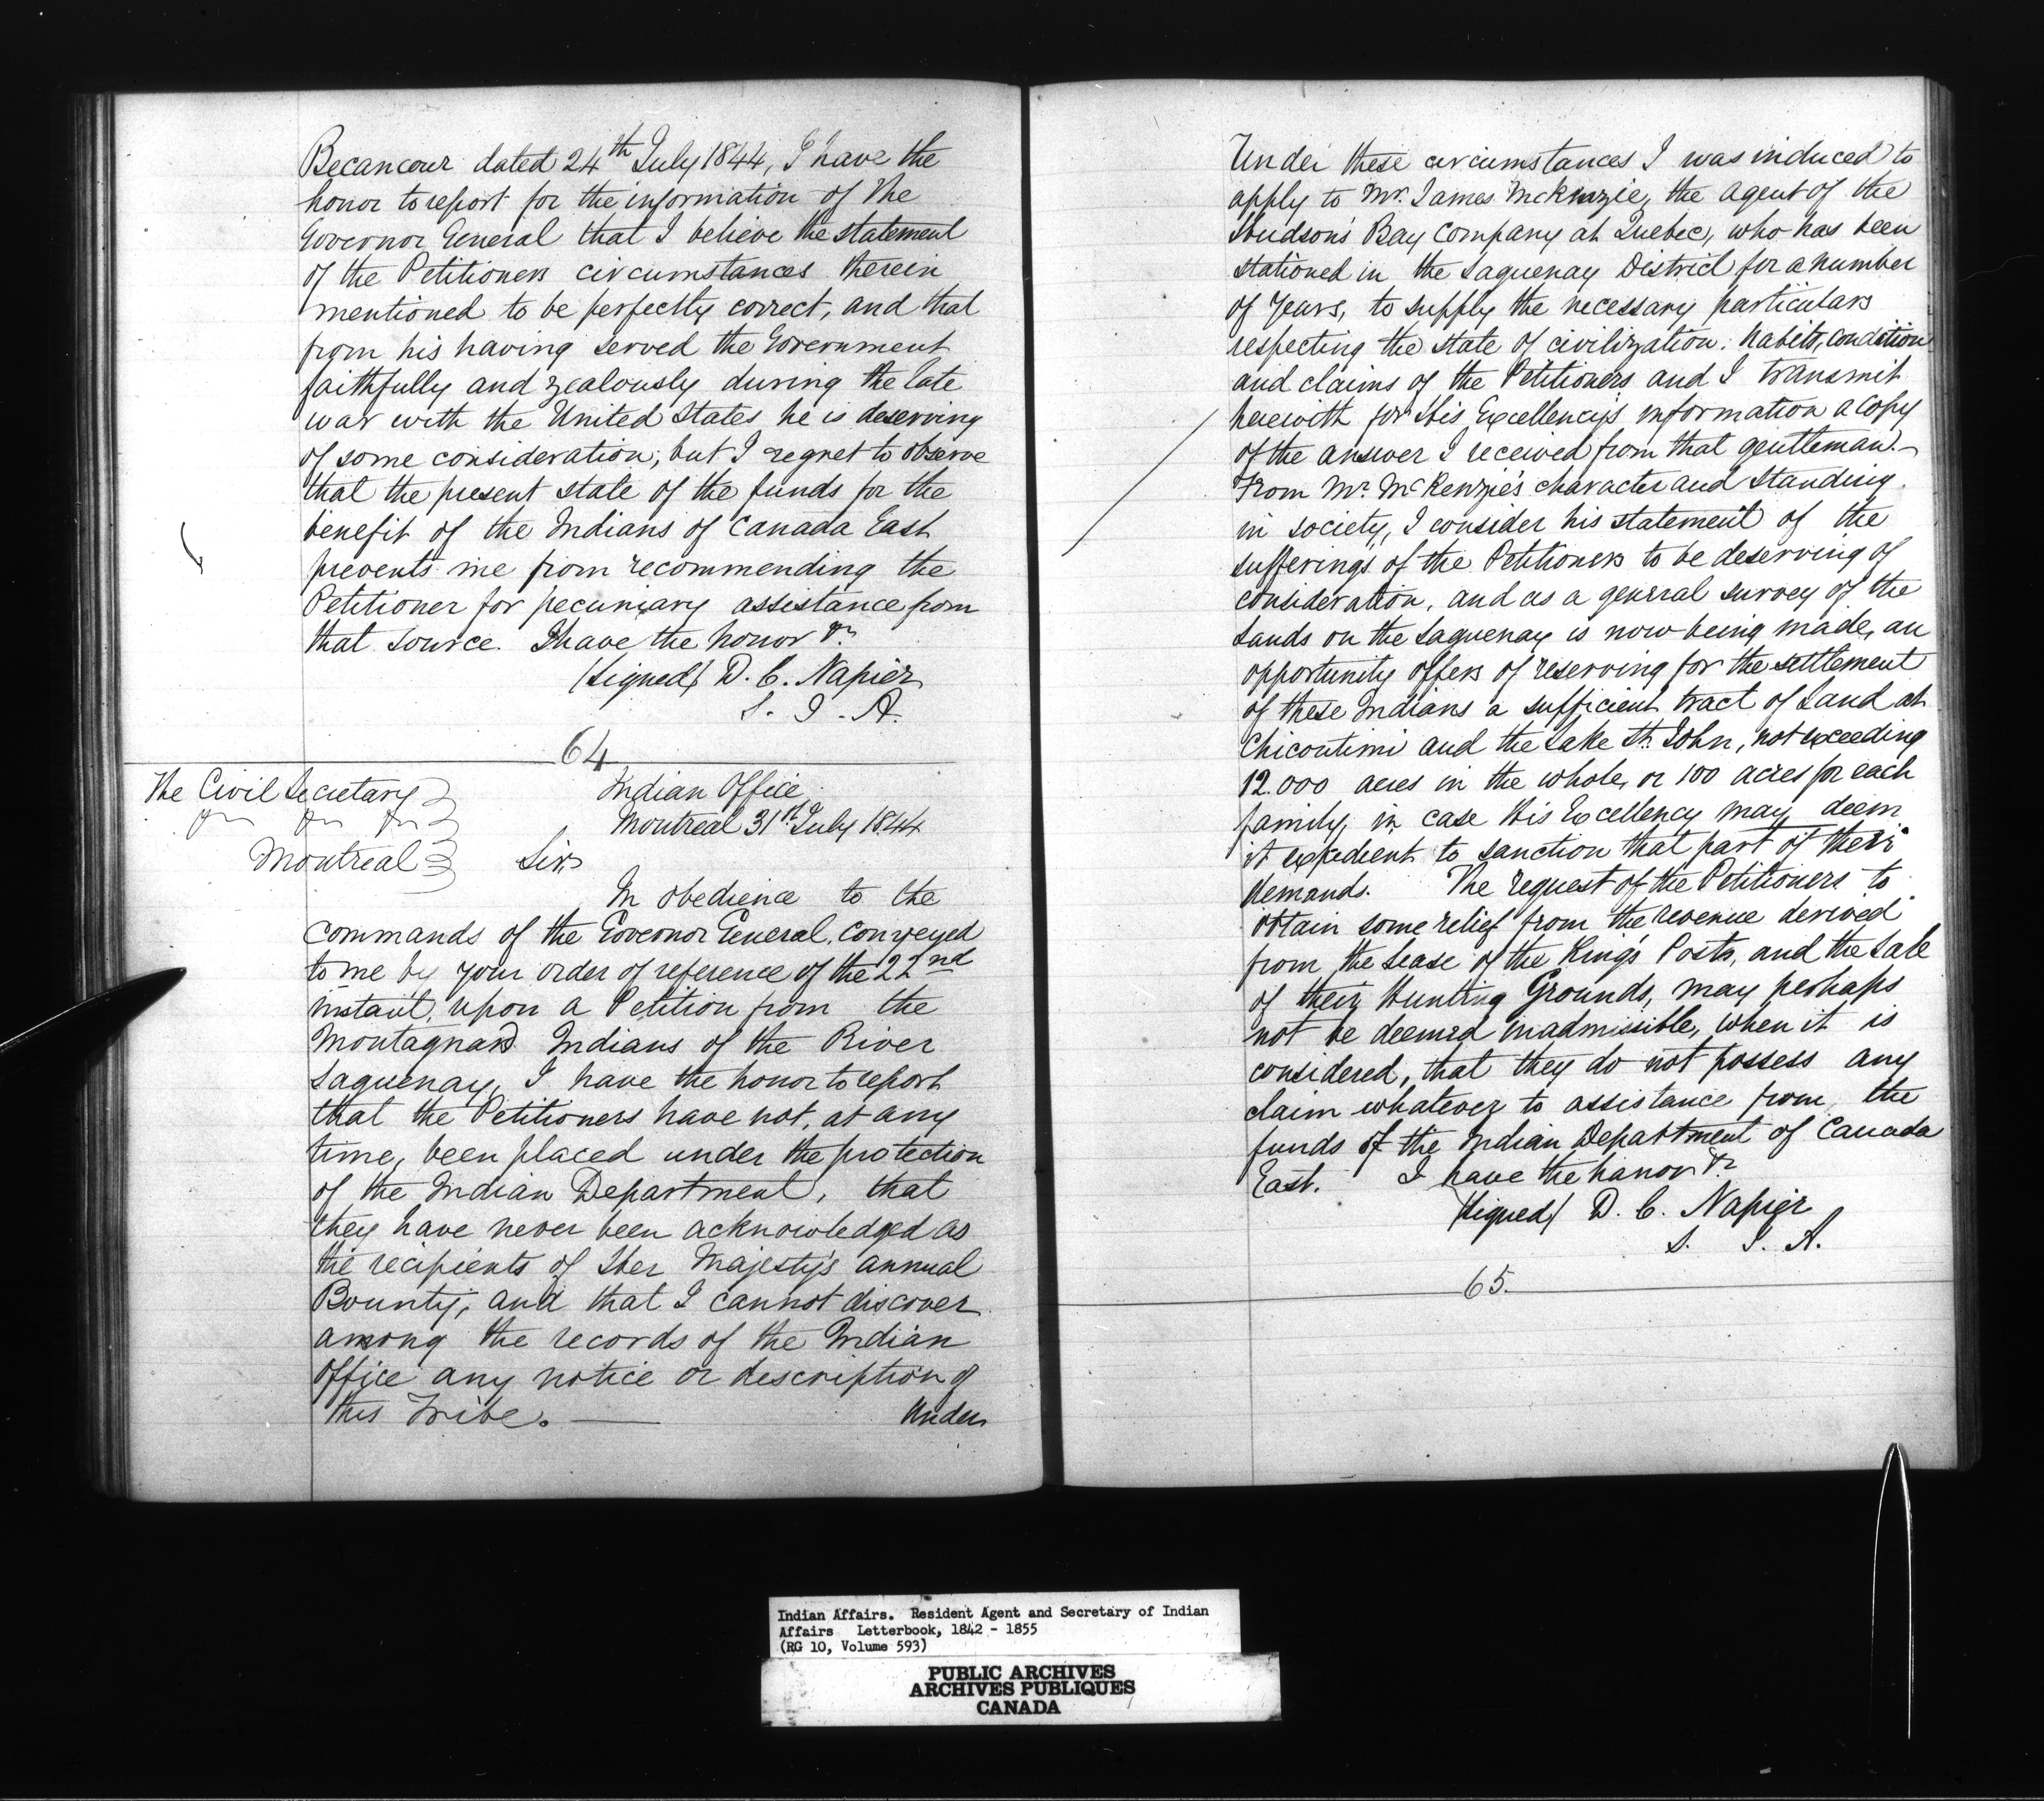 Becancour dated 24th July 1844, I have the
honor to report for the information of The
Governor General that I believe the statement
of the Petitioners circumstances therein
mentioned to be perfectly correct, and that
from his having served the Government
faithfully and zealously during the late
war with the United States he is deserving
of some consideration, but I regret to observe
that the present state of the funds for the
benefit of the Indians of Canada East
prevents me from recommending the
Petitioner for pecuniary assistance from
that source. I have the honor &c
(Signed) D. C. Napier
S. I. A.
64
The Civil Secretary
Montreal
Indian Office
Montreal 31st July 1844
Sir,
In obedience to the
commands of the Governor General, conveyed
to me by your order of reference of the 22nd
instant, upon a Petition from the
Montagnard Indians of the River
Saguenay, I have the honor to report
that the Petitioners have not, at any
time, been placed under the protection
of the Indian Department, that
they have never been acknowledged as
the recipients of Her Majesty's annual
Bounty, and that I cannot discover
among the records of the Indian
Office any notice or description of
this Tribe. —
Under
Under these circumstances I was induced to
apply to Mr. James McKenzie, the agent of the
Hudson's Bay Company at Quebec, who has been
stationed in the Saguenay District for a number
of Years, to supply the necessary particulars
respecting the state of civilization, habits, condition
and claims of the Petitioners and I transmit
herewith for His Excellency's information a copy
of the answer I received from that gentleman.—
From Mr. McKenzie's character and standing
in society, I consider his statement of the
sufferings of the Petitioners to be deserving of
consideration, and as a general survey of the
Lands on the Saguenay is now being made, an
opportunity offers of reserving for the settlement
of these Indians a sufficient tract of Land at
Chicoutimi and the Lake St. John, not exceeding
12.000 acres in the whole, or 100 acres for each
family, in case His Excellency may deem
it expedient to sanction that part of their
demands. The request of the Petitioners to
obtain some relief from the revenue derived
from the Lease of the King's Posts, and the Sale
of their Hunting Grounds, may perhaps
not be deemed inadmissible, when it is
considered, that they do not possess any
claim whatever to assistance from the
funds of the Indian Department of Canada
East. I have the honor &c
(Signed) D. C. Napier
S. I. A.
65.
Indian Affairs. Resident Agent and Secretary of Indian
Affairs Letterbook, 1842 - 1855
(RG 10, Volume 593)
PUBLIC ARCHIVES
ARCHIVES PUBLIQUES
CANADA